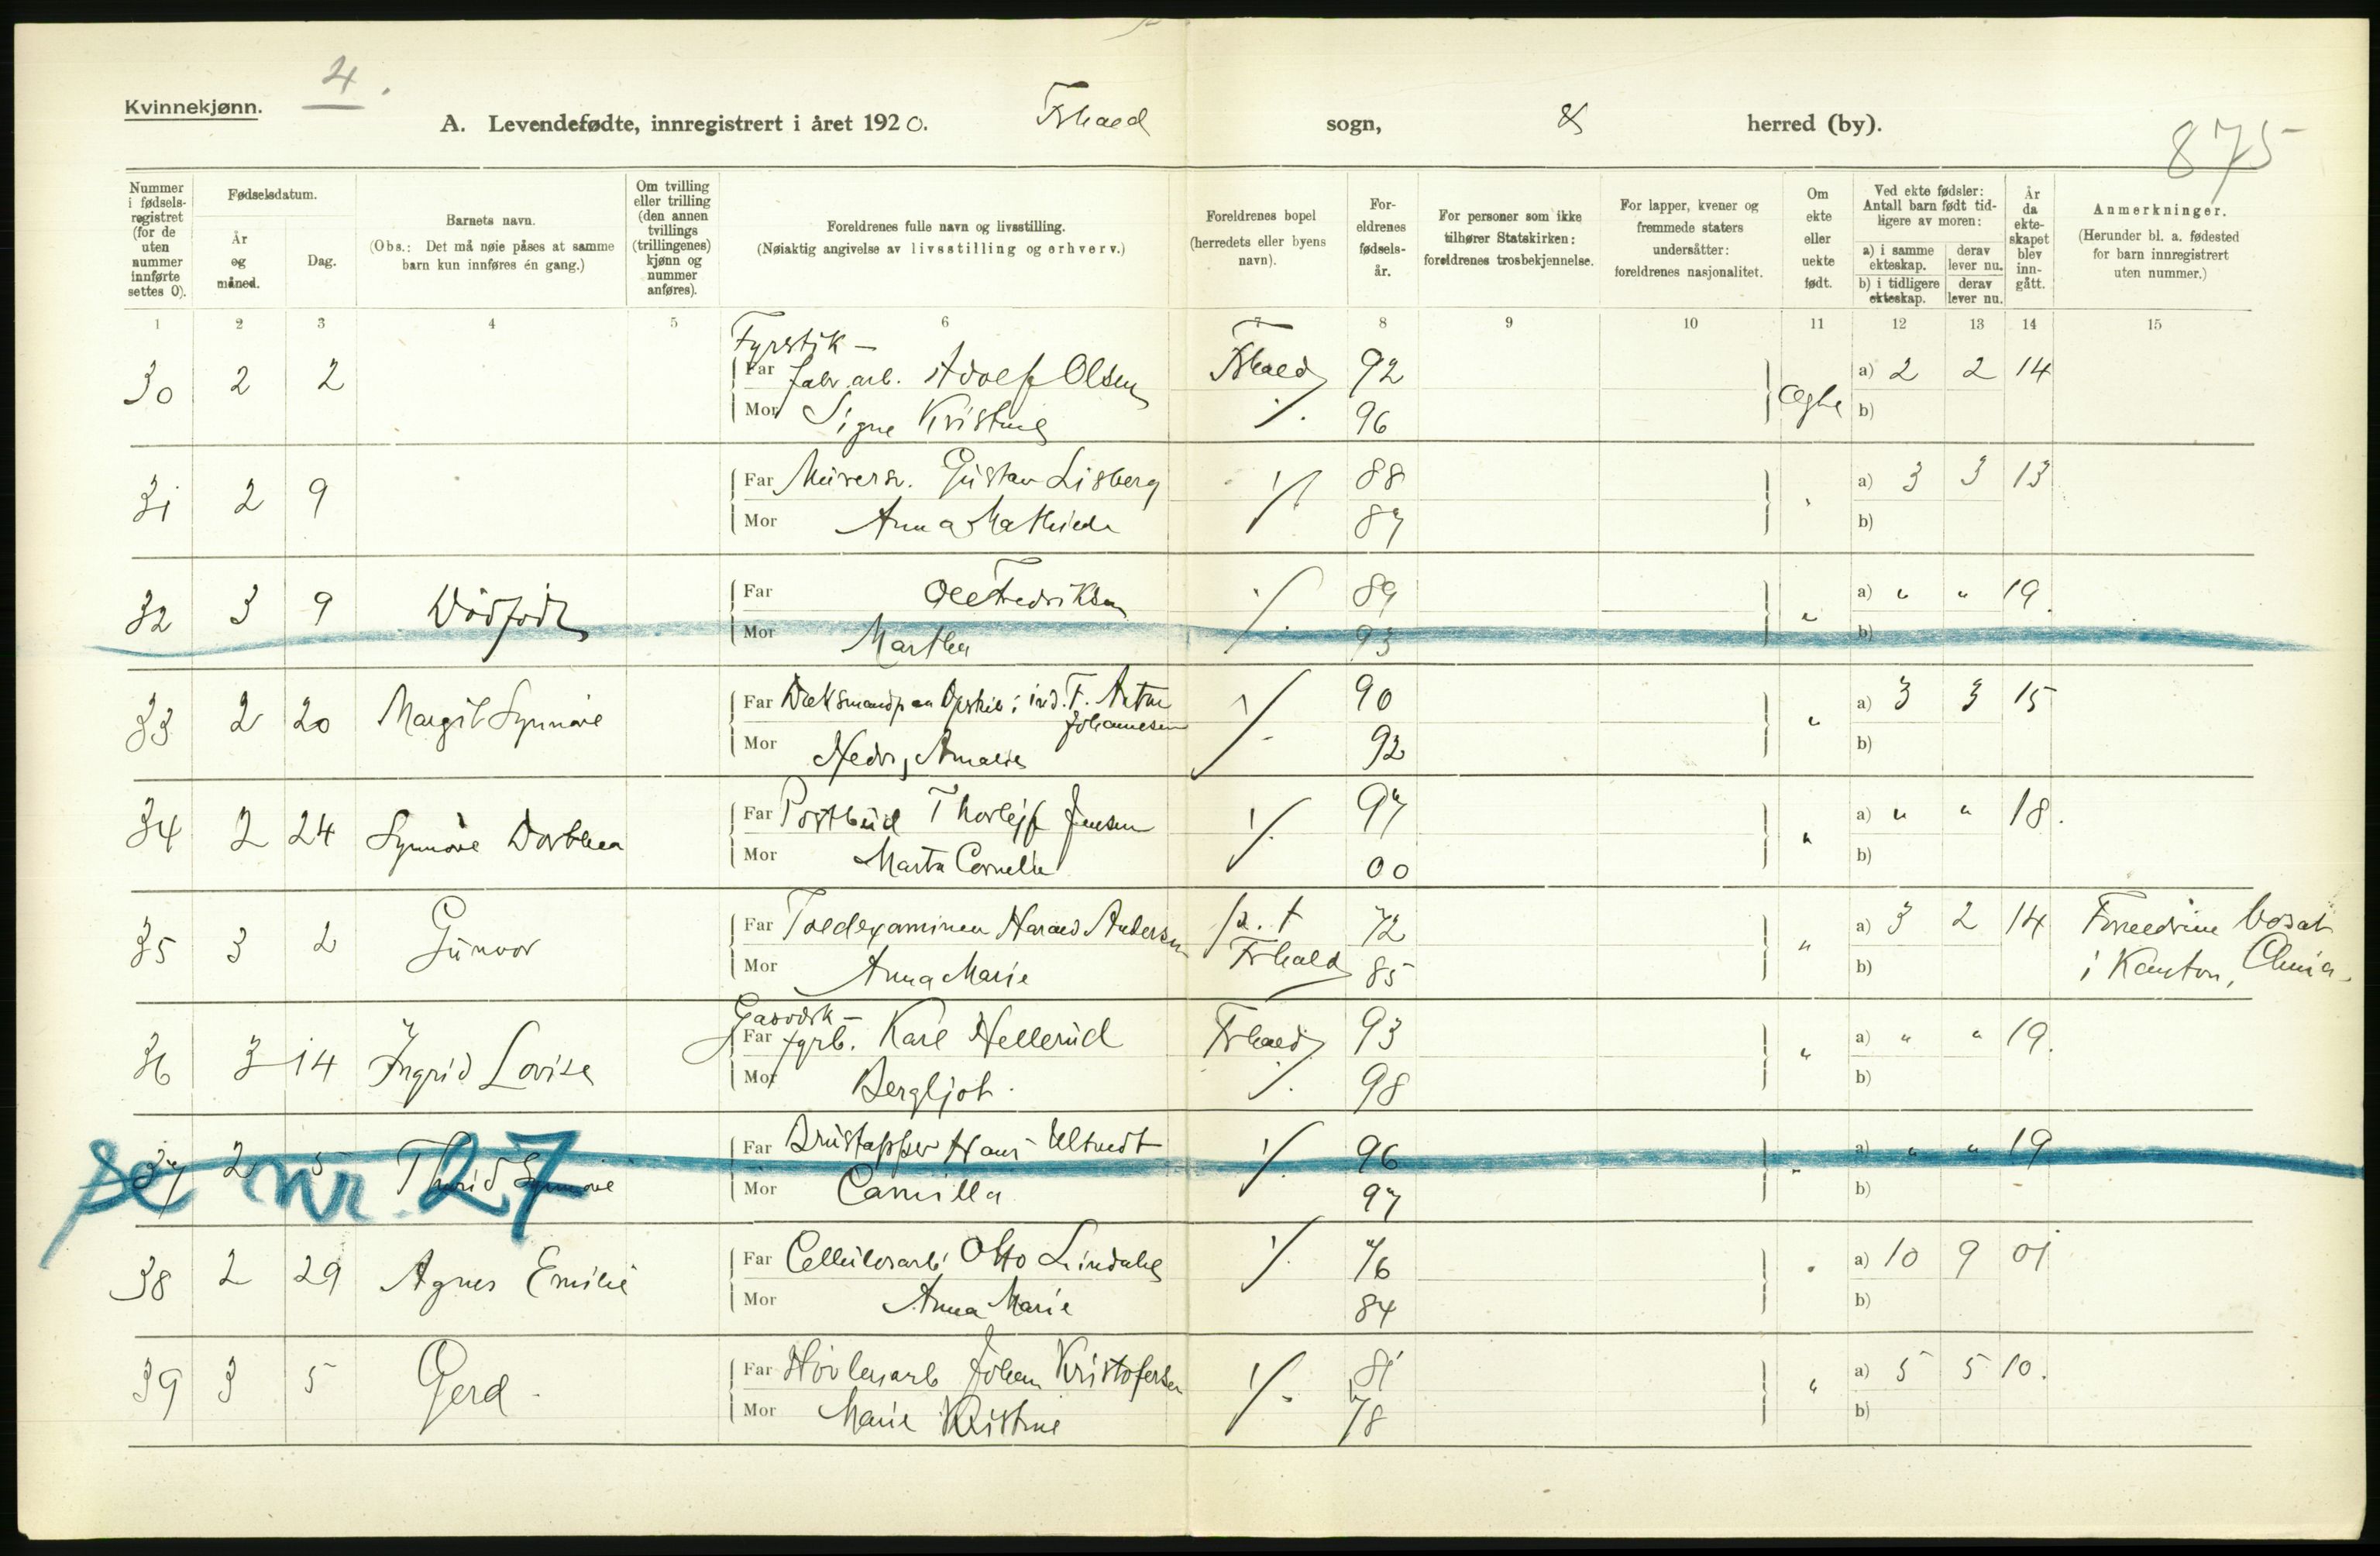 4.
Kvinnekjønn.
A. Levendefødte, innregistrert i året 1920. Frhald sogn, & herred (by).
875
Nummer i fødsels-registret (for de uten nummer innførte settes 0).
Fødselsdatum.
År og måned.
Dag.
Barnets navn.
(Obs.: Det må nøie påses at samme barn kun innføres én gang.)
Om tvilling eller trilling (den annen tvillings (trillingenes) kjønn og nummer anføres).
Foreldrenes fulle navn og livsstilling.
(Nøiaktig angivelse av livsstilling og erhverv.)
Foreldrenes bopel (herredets eller byens navn).
For-eldrenes fødsels-år.
For personer som ikke tilhører Statskirken: foreldrenes trosbekjennelse.
For lapper, kvener og fremmede staters undersåtter: foreldrenes nasjonalitet.
Om ekte eller uekte født.
Ved ekte fødsler: Antall barn født tid-ligere av moren:
a) i samme ekteskap.
derav lever nu.
b) i tidligere ekteskap.
derav lever nu.
År da ekte-skapet blev inn-gått.
Anmerkninger.
(Herunder bl. a. fødested for barn innregistrert uten nummer.)
1 2 3 4 5 6 7 8 9 10 11 12 13 14 15
Fyrstik-
30 2 2 Far fabr. arb. Adolf Olsen Frhald 92 Ægte a) 2 2 14
Mor Signe Kristine 96 b)
31 2 9 Far Murersv. Gustav Lisberg 88 " a) 3 3 13
Mor Anna Mathilde 87 b)
32 3 9 Dødfødt Far Ole Fredriksen 89 " a) " " 19.
Mor Martha 93 b)
33 2 20 Margit Synnöve Far i ind. F. Anton Johannesen 90 " a) 3 3 15
Mor Amalie 92 b)
34 2 24 Synnöve Dorthea Far Postbud Thorleif Jensen 97 " a) " " 18.
Mor Marta Cornelie 00 b)
35 3 2 Gunvor Far Toldexaminen Harald Andersen p. t. Frhald 72 " a) 3 2 14 Foreldrene bosat
Mor Anna Marie 85 b) i Kanton, China.
Gasværk-
36 3 14 Ingrid Lovise Far fyrb. Karl Hellerud Frhald 93 " a) " " 19.
Mor Bergljot. 98 b)
37 2 5 Thorid Synnöve Far Brustapper Hans Ultvedt 96 " a) " " 19
Mor Camilla 97 b)
se nr. 27
38 2 29 Agnes Emilie Far Cellulosarb. Otto Lindahl 76 " a) 10 9 01
Mor Anna Marie 84 b)
39 3 5 Gerd Far Høvleriarb Johan Kristofersen 81 " a) 5 5 10.
Mor Marie Kristine 78 b)